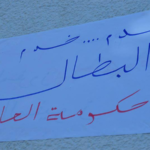 خدم .... خدم
البطال
حكومة العا